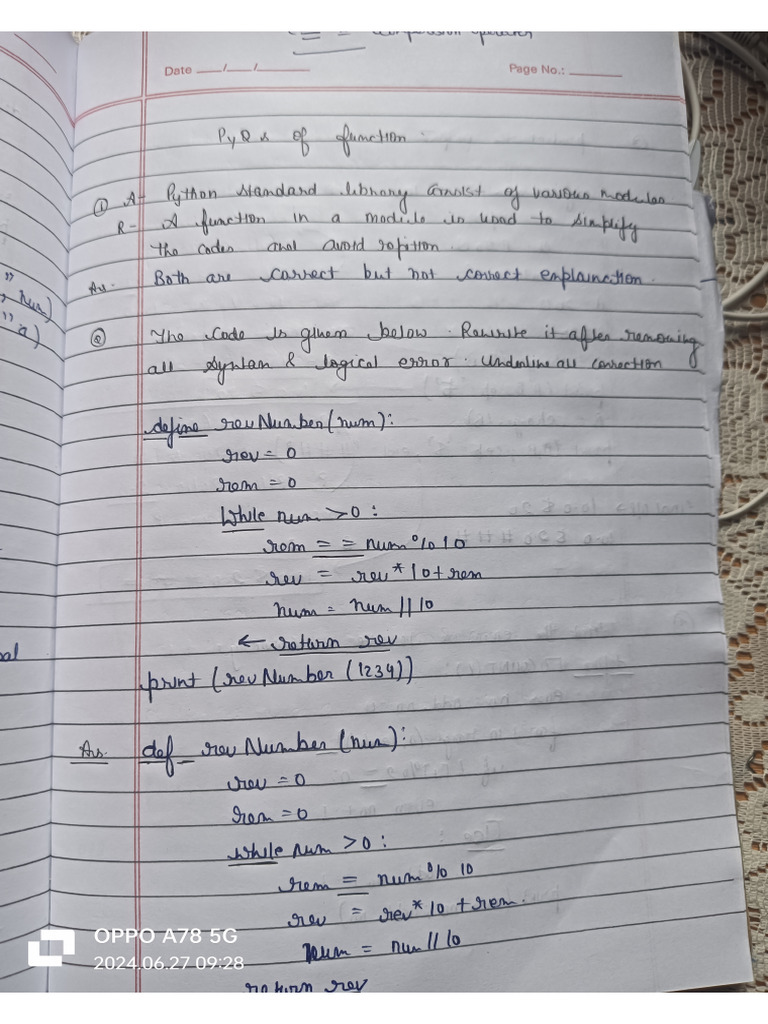 comparison operator
Date __/__/____ Page No.: ______
PyQs of function.
① A- Python standard library consist of various modules
R- A function in a module is used to simplify
the codes and avoid repition.
Ans. Both are correct but not correct explainction.
② The Code is given below. Rewrite it after removing
all syntax & logical error. Underline all correction
define revNumber(num):
rev = 0
rem = 0
While num > 0 :
rem == num % 10
rev = rev * 10 + rem
num = num // 10
← return rev
print (revNumber (1234))
Ans. def revNumber (num):
rev = 0
rem = 0
while num > 0 :
rem = num % 10
rev = rev * 10 + rem.
num = num // 10
return rev
"
, num)
" a)
OPPO A78 5G
2024.06.27 09:28